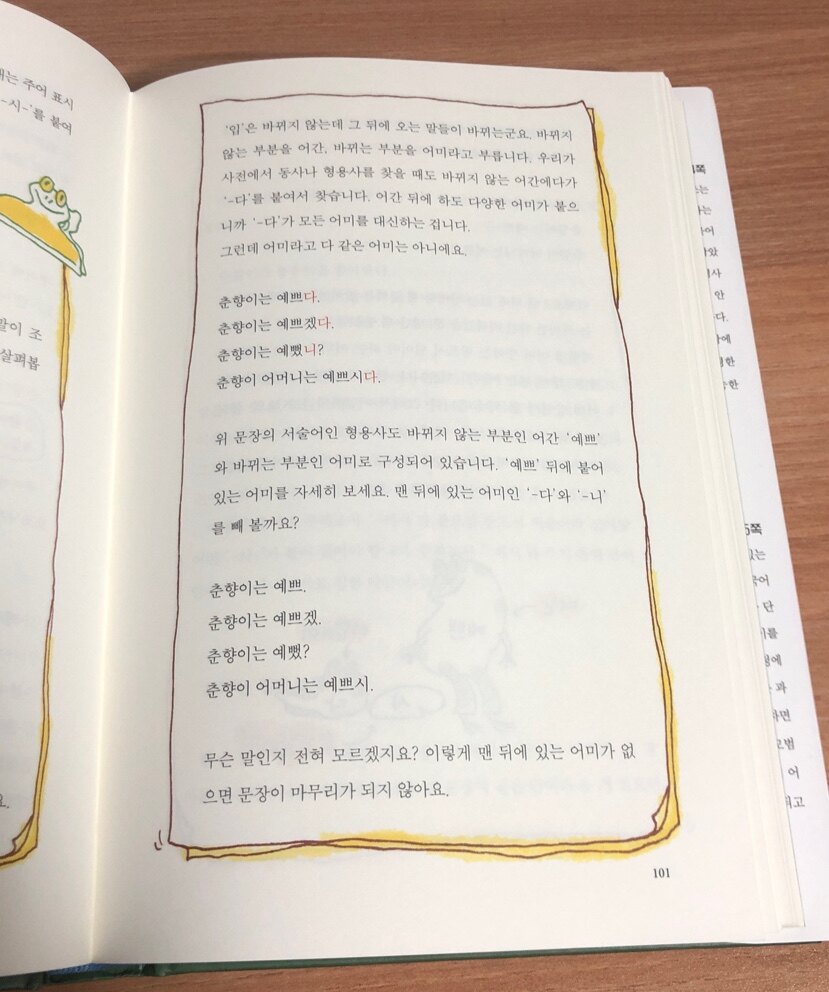 내는 주어 표시
-시-'를 붙여
말이 조
살펴봅
요.
'입'은 바뀌지 않는데 그 뒤에 오는 말들이 바뀌는군요. 바뀌지
않는 부분을 어간, 바뀌는 부분을 어미라고 부릅니다. 우리가
사전에서 동사나 형용사를 찾을 때도 바뀌지 않는 어간에다가
'-다'를 붙여서 찾습니다. 어간 뒤에 하도 다양한 어미가 붙으
니까 '-다'가 모든 어미를 대신하는 겁니다.
그런데 어미라고 다 같은 어미는 아니에요.
춘향이는 예쁘다.
춘향이는 예쁘겠다.
춘향이는 예뻤니?
춘향이 어머니는 예쁘시다.
위 문장의 서술어인 형용사도 바뀌지 않는 부분인 어간 '예쁘'
와 바뀌는 부분인 어미로 구성되어 있습니다. '예쁘' 뒤에 붙어
있는 어미를 자세히 보세요. 맨 뒤에 있는 어미인 '-다'와 '-니'
를 빼 볼까요?
춘향이는 예쁘.
춘향이는 예쁘겠.
춘향이는 예뻤?
춘향이 어머니는 예쁘시.
무슨 말인지 전혀 모르겠지요? 이렇게 맨 뒤에 있는 어미가 없
으면 문장이 마무리가 되지 않아요.
101